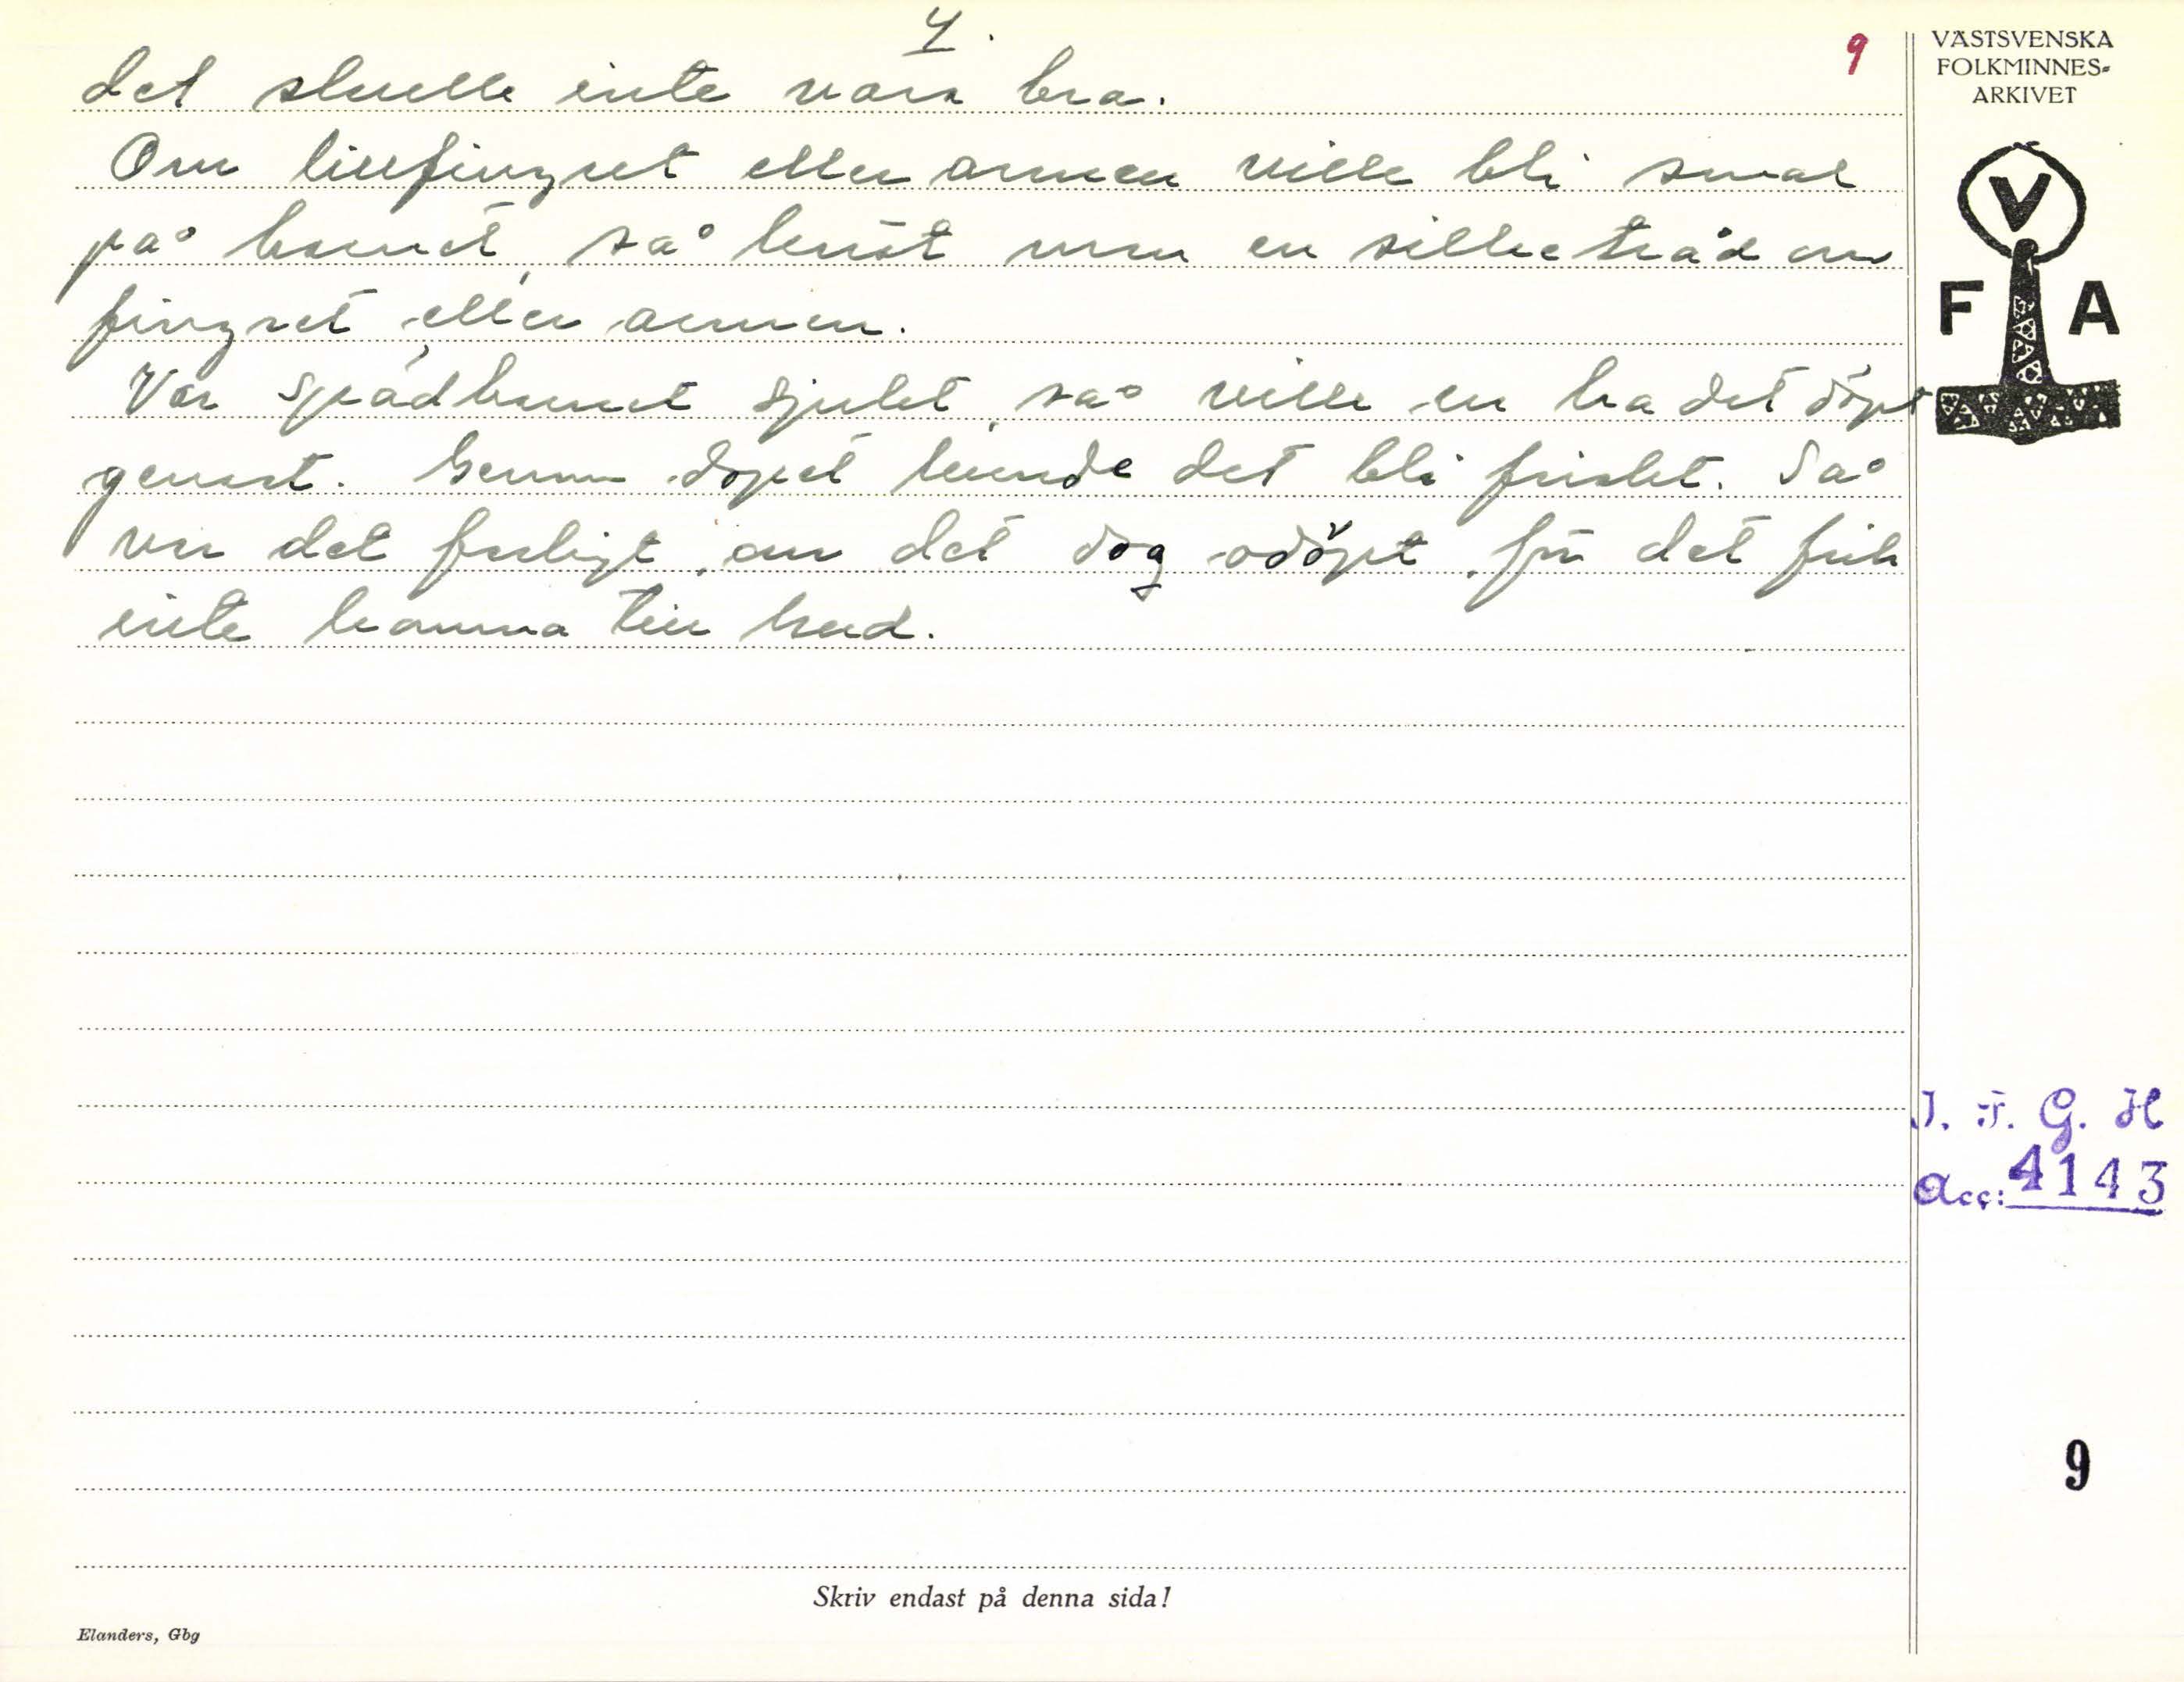 4.
9
det skulle inte vara bra.
Om lillfingret eller armen ville bli smal
på barnet, så knöt mm en silketråd om
fingret eller armen.
Var spädbarnet sjukt, så ville en ha det döpt
genast. Genom dopet kunde det bli friskt. Så
var det farligt, om det dog odöpt, för det fick
inte komma till Gud.
VÄSTSVENSKA
FOLKMINNES-
ARKIVET
V
F A
I. F. G. H
Acc: 4143
9
Skriv endast på denna sida!
Elanders, Gbg